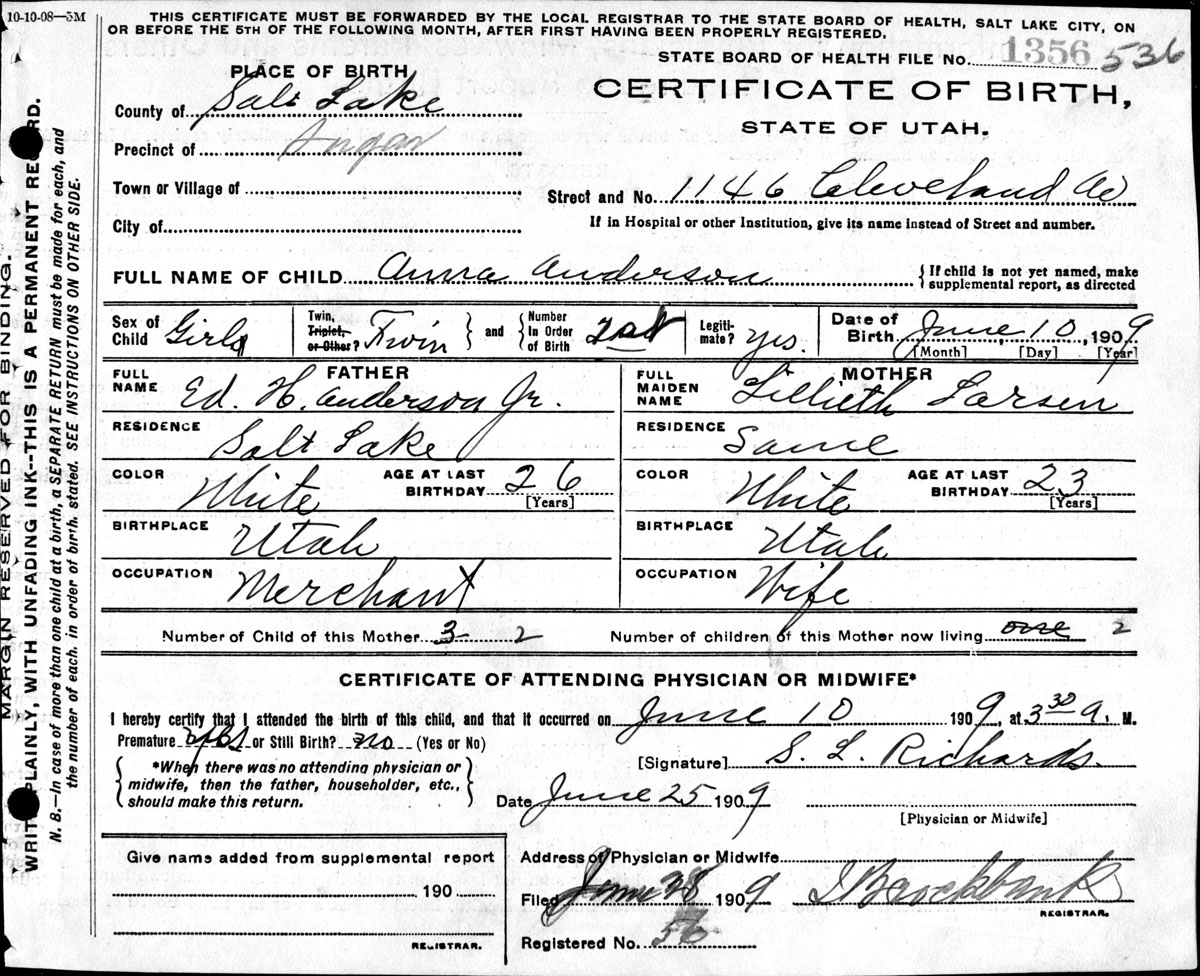 10-10-08—3M
THIS CERTIFICATE MUST BE FORWARDED BY THE LOCAL REGISTRAR TO THE STATE BOARD OF HEALTH, SALT LAKE CITY, ON
OR BEFORE THE 5TH OF THE FOLLOWING MONTH, AFTER FIRST HAVING BEEN PROPERLY REGISTERED.
STATE BOARD OF HEALTH FILE No. 1356 536
CERTIFICATE OF BIRTH,
STATE OF UTAH.
PLACE OF BIRTH
County of Salt Lake
Precinct of Sugar
Town or Village of
City of
Street and No. 1146 Cleveland Av
If in Hospital or other Institution, give its name instead of Street and number.
FULL NAME OF CHILD Anna Anderson
{ If child is not yet named, make
supplemental report, as directed
Sex of Child Girl
Twin, Triplet, or Other? Twin } and { Number In Order of Birth 2nd
Legiti-mate? Yes.
Date of Birth June 10, 1909
[Month] [Day] [Year]
FATHER
FULL NAME Ed. H. Anderson Jr.
RESIDENCE Salt Lake
COLOR White AGE AT LAST BIRTHDAY 26 [Years]
BIRTHPLACE Utah
OCCUPATION Merchant
MOTHER
FULL MAIDEN NAME Lillieth Larsen
RESIDENCE Same
COLOR White AGE AT LAST BIRTHDAY 23 [Years]
BIRTHPLACE Utah
OCCUPATION Wife
Number of Child of this Mother 3 2 Number of children of this Mother now living one 2
CERTIFICATE OF ATTENDING PHYSICIAN OR MIDWIFE*
I hereby certify that I attended the birth of this child, and that it occurred on June 10 1909, at 3 30 a. M.
Premature yes or Still Birth? no (Yes or No)
{ *When there was no attending physician or
midwife, then the father, householder, etc.,
should make this return. }
[Signature] S. L. Richards.
Date June 25 1909
[Physician or Midwife]
Give name added from supplemental report
190
REGISTRAR.
Address of Physician or Midwife
Filed June 28 1909 Brockbank
REGISTRAR.
Registered No. 56
MARGIN RESERVED FOR BINDING.
WRITE PLAINLY, WITH UNFADING INK--THIS IS A PERMANENT RECORD.
N. B.—In case of more than one child at a birth, a SEPARATE RETURN must be made for each, and
the number of each, in order of birth, stated. SEE INSTRUCTIONS ON OTHER SIDE.